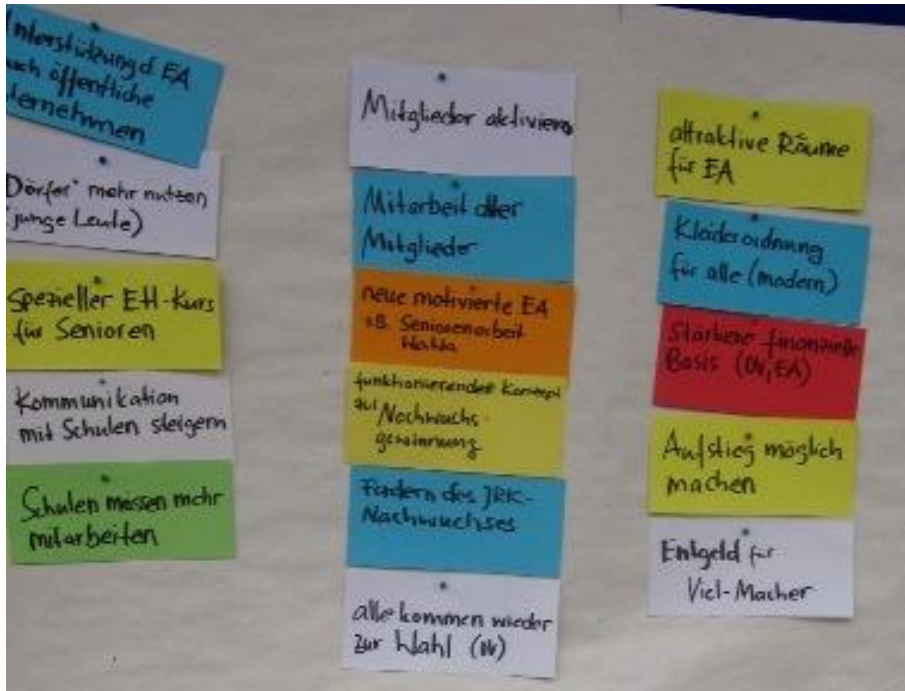 Unterstützung d. EA
durch öffentliche
Unternehmen
"Dörfer" mehr nutzen
(junge Leute)
spezieller EH-Kurs
für Senioren
Kommunikation
mit Schulen steigern
Schulen müssen mehr
mitarbeiten
Mitglieder aktivieren
Mitarbeit aller
Mitglieder
neue motivierte EA
z.B. Seniorenarbeit
funktionierendes Konzept
zur Nachwuchs-
gewinnung
Fördern des JRK-
Nachwuchses
alle kommen wieder
zur Wahl (OV)
attraktive Räume
für EA
Kleiderordnung
für alle (modern)
Stärkere finanzielle
Basis (OV, EA)
Aufstieg möglich
machen
Entgeld für
Viel-Macher